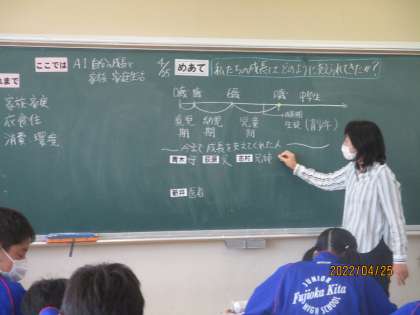 ここでは
A1 自分の成長と
家族・家庭生活
4/25
めあて
私たちの成長は、どのように支えられてきたか？
まで
家族・家庭
衣食住
消費・環境
0歳
6歳
中学生
乳児期
幼児期
児童期
生徒
〜今まで成長を支えてくれた人〜
青木 母
父
兄姉
新井 医者
JUNIOR
Fujioka Kita
HIGH SCHOOL
2022/04/25